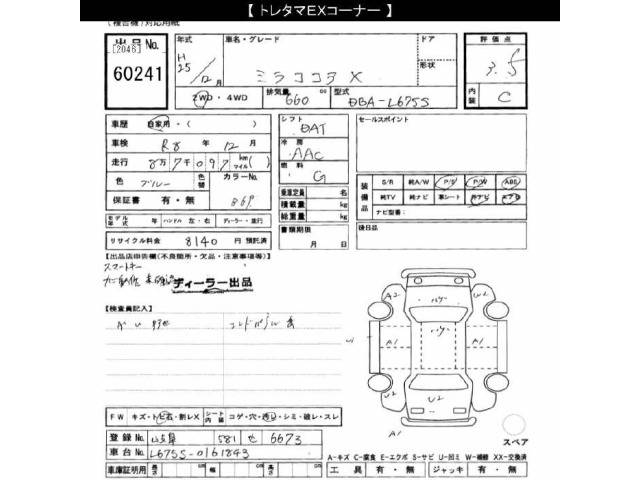 【 トレタマEXコーナー 】
(複合機)対応用紙
出品No. [2046] 60241
年式 H25/12月
車名・グレード ミラココア X
ドア
形状
評価点 3.5
内装 C
2WD・4WD
排気量 660 cc
型式 DBA-L675S
車歴 自家用・( )
車検 R8年12月
走行 8万7千097 km マイル( )
色 ブルー 色替 カラーNo.
保証書 有・無
モデル年式 年 ハンドル 左・右 ディーラー・並行
リサイクル料金 8140 円 預託済
シフト DAT
冷房 AAC
燃料 G
乗車定員 名
積載量 kg
総重量 kg
書類期限 月 日
セールスポイント
装備品 S/R 純A/W P/S P/W ABS
純TV 純ナビ 革シート 外ナビ エアB
ナビ型番:
後日品
【出品店申告欄(不良箇所・欠品・注意事項等)】
スマートキー
ディーラー出品
【検査員記入】
A2 U2
A1 A1
U2 U2
A1
スペア
FW キズ・トビ石・割レX シート内装 コゲ・穴・汚レ・シミ・破レ・スレ
登録No. 581 6673
車台No. L675S-0161843
車庫証明用 長さ cm 幅 cm 高さ cm
A-キズ C-腐食 E-エクボ S-サビ U-凹ミ W-補修 XX-交換済
工具 有・無 ジャッキ 有・無